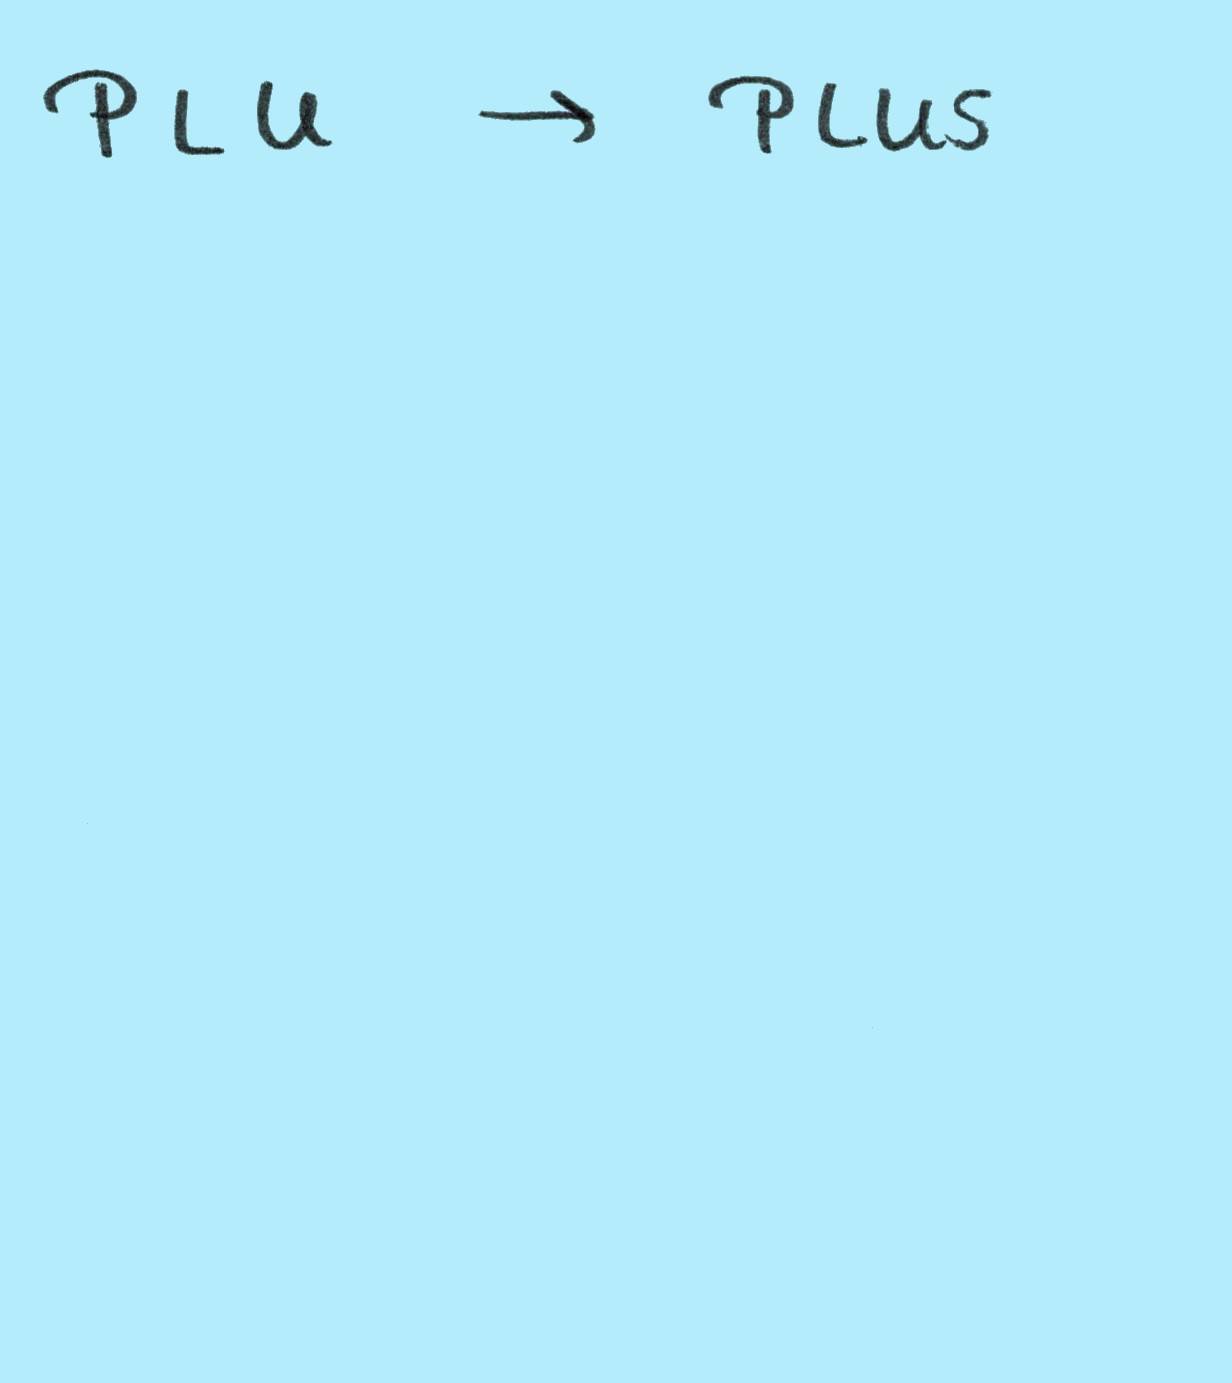 PLU → PLUS